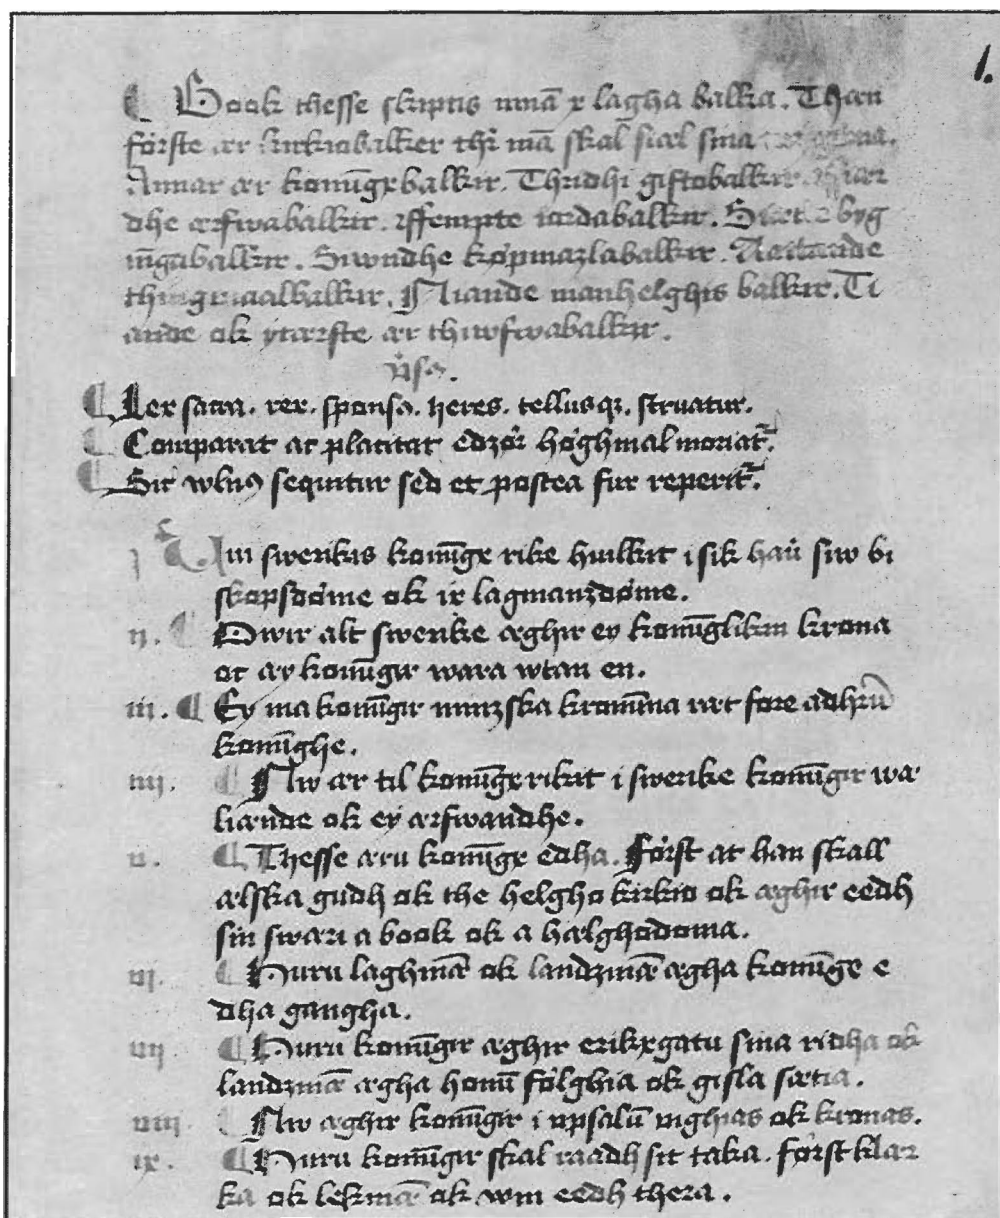 1.
¶ Book thesse skriptis inna x lagha balka. Than
förste ær kirkiobalker thr̄ mā skal siæl sina
Annar ær konūgxbalkir. Thridhi giftobalkir. Fiær
dhe ærfwabalkir. ffempte iordabalkir. Siæt byg
nīgabalkir. Siwndhe köpmazlabalkir. Aattande
thingmaalbalkir. Niande manhelghis balkir. Ti
ande ok ytærste ær thiwfwabalkir.
v̄sꝰ.
¶ Lex sacra. rex. sponsa. heres. tellusqꝫ. struatur.
¶ Comparat ac placitat edzör höghmal moriat᷑.
¶ Sic wlnꝰ sequitur sed et postea fur reperit᷑.
j ¶ Um swerikis konūgx rike huilkit i sik hau̅ siw bi
skopsdöme ok ix lagmanzdöme.
ij. ¶ Owir alt swerike æghir ey konūglikin krona
oc æy konūgir wara wtan en.
iij. ¶ Ey ma konūgir minzska kronūna ræt fore adhrū
konūghe.
iiij. ¶ Nw ær til konūgx rikit i swerike konūgir wæ
liande ok ey ærfwandhe.
v. ¶ Thesse æru konūgx edha. Först at han skall
ælska gudh ok the helgho kirkio ok æghir eedh
sin swæri a book ok a hælghodoma.
vj. ¶ Huru laghmæ̅ ok landzmæ̅ ægha konūgx e
dha gangha.
vij. ¶ Huru konūgir æghir erikxgatu sina ridha ok
landzmæ̅ ægha honū fölghia ok gisla sætia.
viij. ¶ Nw æghir konūgir i upsalū vighias ok kronas.
ix. ¶ Huru konūgir skal raadh sit taka. först klær
ka ok lekmæ̅ ok wm eedh thera.